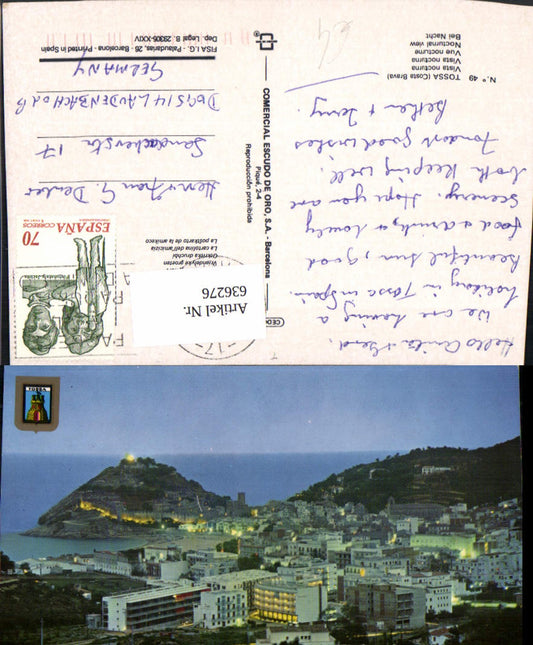 N.º 49 TOSSA (Costa Brava)
Vista nocturna
Vista nocturna
Vue nocturne
Nocturnal view
Bei Nacht
Hello Anita + Gerd.
We are having a
holiday in Tossa in Spain.
Beautiful sun, good
food & drink, & lovely
scenery. Hope you are
both keeping well.
Fondest good wishes
Bethen + Terry.
COMERCIAL ESCUDO DE ORO, S.A. - Barcelona
Piqué, 2-4
Reproducción prohibida
Vriendelijke groeten
La cartolina dell'amicizia
La postitarte de la
ESPAÑA CORREOS
70
Herr + Frau G.
17
D6951 4 LAUDENBACH
GERMANY
FISA I.G. - Palaudarias, 26 - Barcelona - Printed in Spain
Dep. Legal B. 28306-XXIV
Artikel Nr.
636276
TOSSA